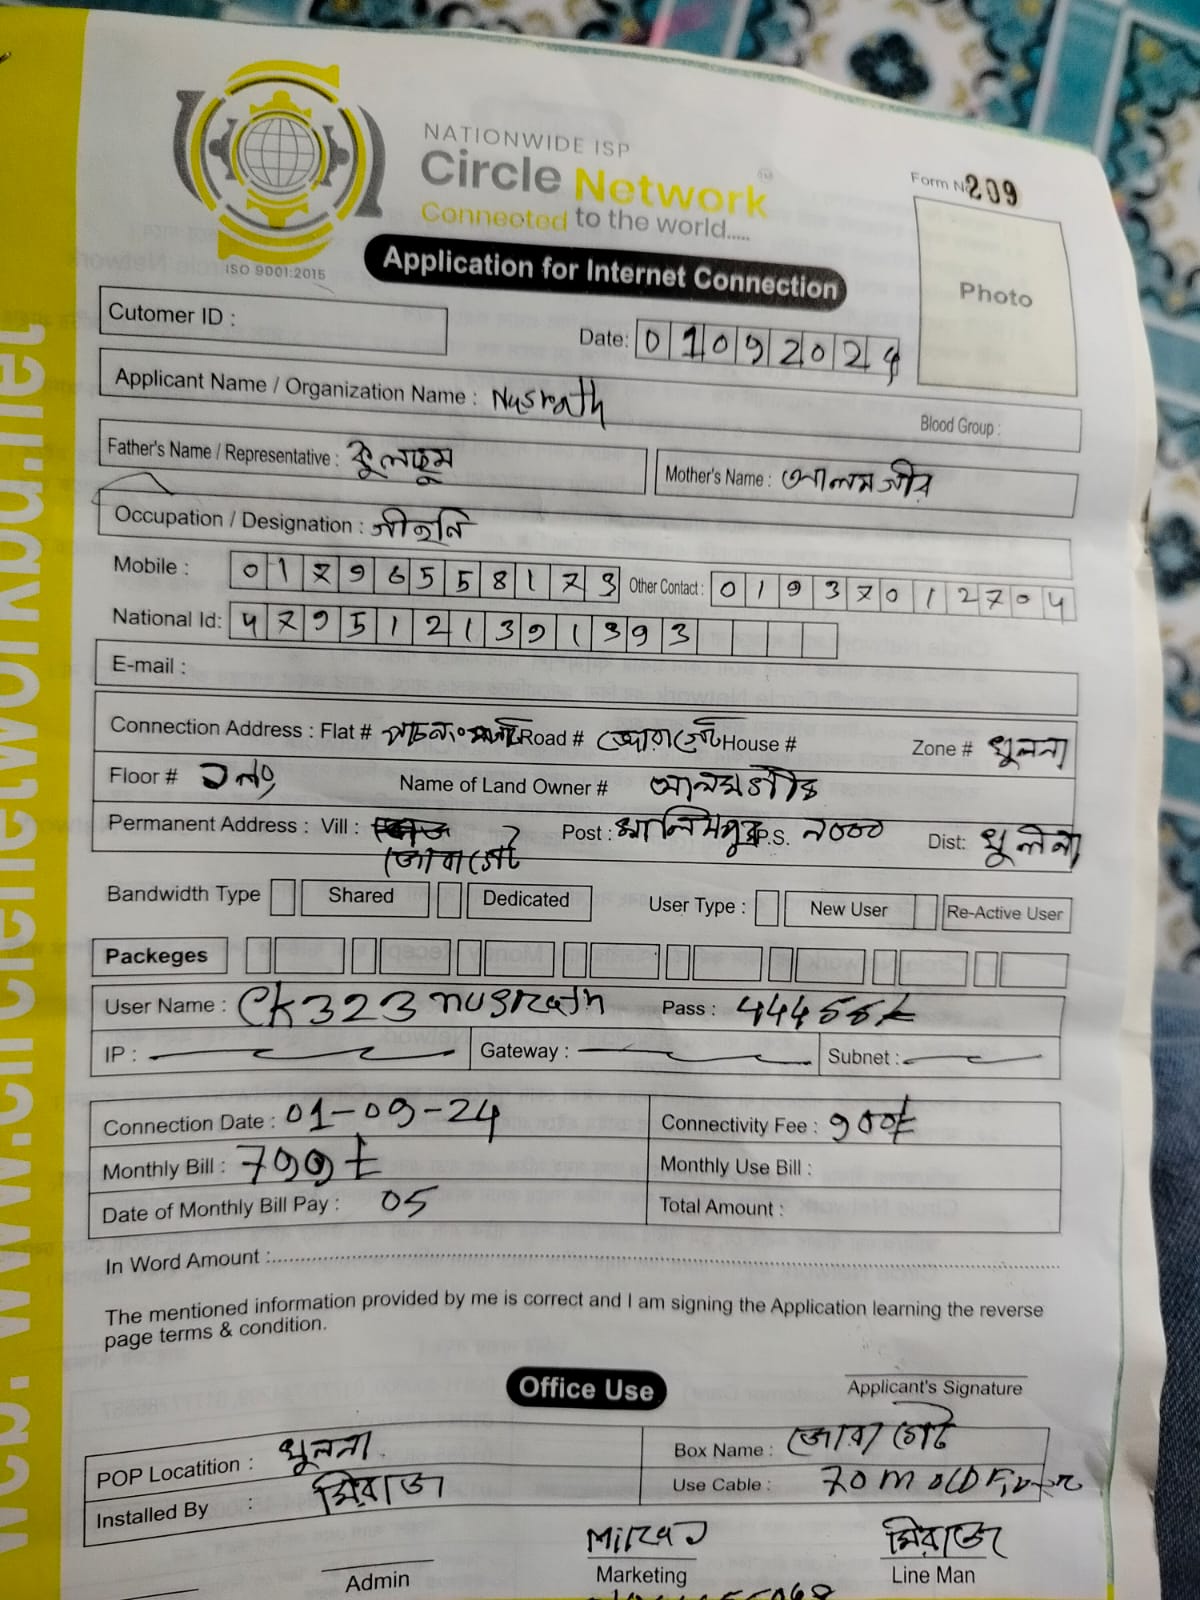 NATIONWIDE ISP
Circle Network
Connected to the world.....
ISO 9001:2015
Form N 209
Application for Internet Connection
Photo
Cutomer ID :
Date: 01092024
Applicant Name / Organization Name : Nusrath
Blood Group :
Father's Name / Representative : কুলছুম
Mother's Name : আলমগীর
Occupation / Designation :
Mobile : 01796558173 Other Contact : 01937012704
National Id: 4795121391393
E-mail :
Connection Address : Flat # Road # জোরাগেট House # Zone # খুলনা
Floor # ১নং Name of Land Owner # আলমগীর
Permanent Address : Vill : জোরাগেট Post : খালিশপুর P.S. ৯০০০ Dist: খুলনা
Bandwidth Type Shared Dedicated User Type : New User Re-Active User
Packeges
User Name : CK323nusrath Pass :
IP : Gateway : Subnet :
Connection Date : 01-09-24 Connectivity Fee : 900৳
Monthly Bill : 799৳ Monthly Use Bill :
Date of Monthly Bill Pay : 05 Total Amount :
In Word Amount :
The mentioned information provided by me is correct and I am signing the Application learning the reverse
page terms & condition.
Office Use
Applicant's Signature
POP Locatition : খুলনা Box Name : জোরাগেট
Installed By : মিরাজ Use Cable : 70m OLD Fiber
Miraj
মিরাজ
Admin
Marketing
Line Man
Web: www.circlenetworkbd.net